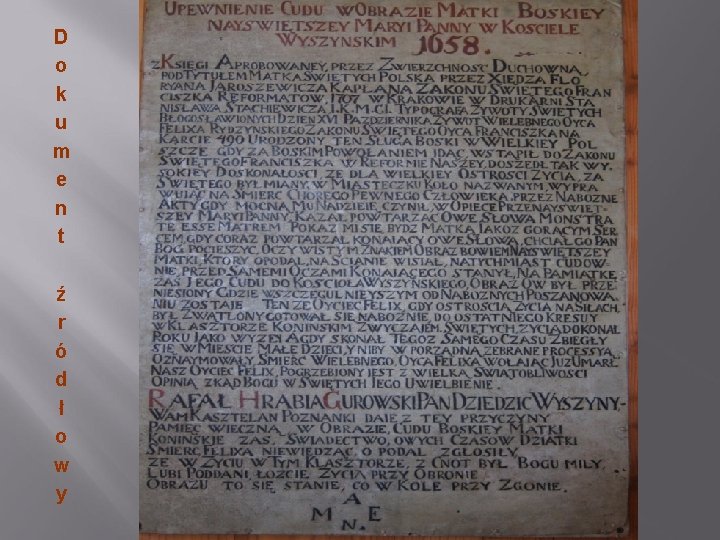 Dokument źródłowy
UPEWNIENIE CUDU W OBRAZIE MATKI BOSKIEY
NAYSWIETSZEY MARYI PANNY W KOSCIELE
WYSZYNSKIM 1658.
Z KSIĘGI APROBOWANEY, PRZEZ ZWIERZCHNOSC DUCHOWNĄ
POD TYTUŁEM MATKA SWIĘTYCH POLSKA PRZEZ XIĘDZA FLO
RYANA JAROSZEWICZA KAPŁANA ZAKONU SWIĘTEGO FRAN
CISZKA REFORMATOW, 1767 W KRAKOWIE W DRUKARNI STA
NISŁAWA STACHIEWICZA J.K.M.C.I. TYPOGRAFA ZYWOTY SWIĘTYCH
BŁOGOSŁAWIONYCH DZIEN XVI PAZDZIERNIKA ZYWOT WIELEBNEGO OYCA
FELIXA RYDZYNSKIEGO ZAKONU SWIĘTEGO OYCA FRANCISZKA NA
KARCIE 490 URODZONY TEN SŁUGA BOSKI W WIELKIEY POL
SZCZE GDY ZA BOSKIM POWOŁANIEM IDĄC, WSTĄPIŁ DO ZAKONU
SWIĘTEGO FRANCISZKA W REFORMIE NASZEY, DOSZEDŁ TAK WY.
SOKIEY DOSKONAŁOSCI, ZE DLA WIELKIEY OSTROSCI ZYCIA, ZA
SWIĘTEGO BYŁ MIANY, W MIASTECZKU KOŁO NAZWANYM, WYPRA
WUIĄC NA SMIERC CHOREGO PEWNEGO CZŁOWIEKA, PRZEZ NABOZNE
AKTY GDY MOCNĄ MU NADZIEIE CZYNIŁ, W OPIECE PRZENAYSWIET-
SZEY MARYI PANNY, KAZAŁ POWTARZAC OWE SŁOWA MONSTRA
TE ESSE MATREM POKAZ MI SIE BYDZ MATKĄ JAKOZ GORĄCYM SER
CEM, GDY CORAZ POWTARZAŁ KONAIĄCY OWE SŁOWA, CHCIAŁ GO PAN
BOG POCIESZYC, OCZYWISTYM ZNAKIEM OBRAZ BOWIEM NAYSWIETSZEY
MATKI, KTORY OPODAL, NA SCIANIE WISIAŁ, NATYCHMIAST CUDOW-
NIE, PRZED SAMEMI OCZAMI KONAIĄCEGO STANYŁ, NA PAMIATKE
ZAS JEGO CUDU DO KOSCIOŁA WYSZYNSKIEGO, OBRAZ OW BYŁ PRZE-
NIESIONY GDZIE WSZCZEGULNIEYSZYM OD NABOZNYCH POSZANOWA.
NIU ZOSTAIE TEN ZE OYCIEC FELIX, GDY OSTROSCIĄ ZYCIA NA SIŁACH,
BYŁ ZWĄTLONY GOTOWAŁ SIĘ NABOZNIE, DO OSTATNIEGO KRESU Y
W KLASZTORZE KONINSKIM ZWYCZAIEM, SWIĘTYCH, ZYCIA DOKONAŁ
ROKU JAKO WYZEY A GDY SKONAŁ TEGOZ SAMEGO CZASU ZBIEGŁY
SIĘ W MIESCIE MAŁE DZIECI, Y NIBY W PORZĄDNĄ, ZEBRANE PROCESSYĄ
OZNAYMOWAŁY, SMIERC WIELEBNEGO, OYCA FELIXA WOŁAIĄC JUZ UMARŁ
NASZ OYCIEC FELIX, POGRZEBIONY JEST Z WIELKĄ SWIĄTOBLIWOSCI
OPINIĄ ZKĄD BOGU W SWIĘTYCH IEGO UWIELBIENIE.
RAFAŁ HRABIA GUROWSKI PAN DZIEDZIC WYSZYNY-
WAM KASZTELAN POZNANKI DAIE Z TEY PRZYCZYNY
PAMIĘC WIECZNĄ W OBRAZIE, CUDU BOSKIEY MATKI
KONINSKIE ZAS, SWIADECTWO, OWYCH CZASOW DZIATKI
SMIERC FELIXA NIEWIEDZĄC, O PODAL ZGŁOSIŁY,
ZE W ZYCIU W TYM KLASZTORZE, Z CNOT BYŁ BOGU MIŁY,
LUBI PODDANI, ŁOZCIE ZYCIA PRZY OBRONIE
OBRAZU TO SIĘ STANIE, CO W KOLE PRZY ZGONIE.
A
M E
N.